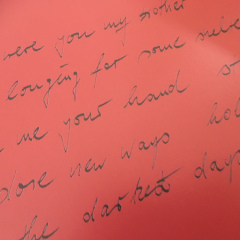 were you my mother
longing for some
me your hand
close new ways
the darkest days